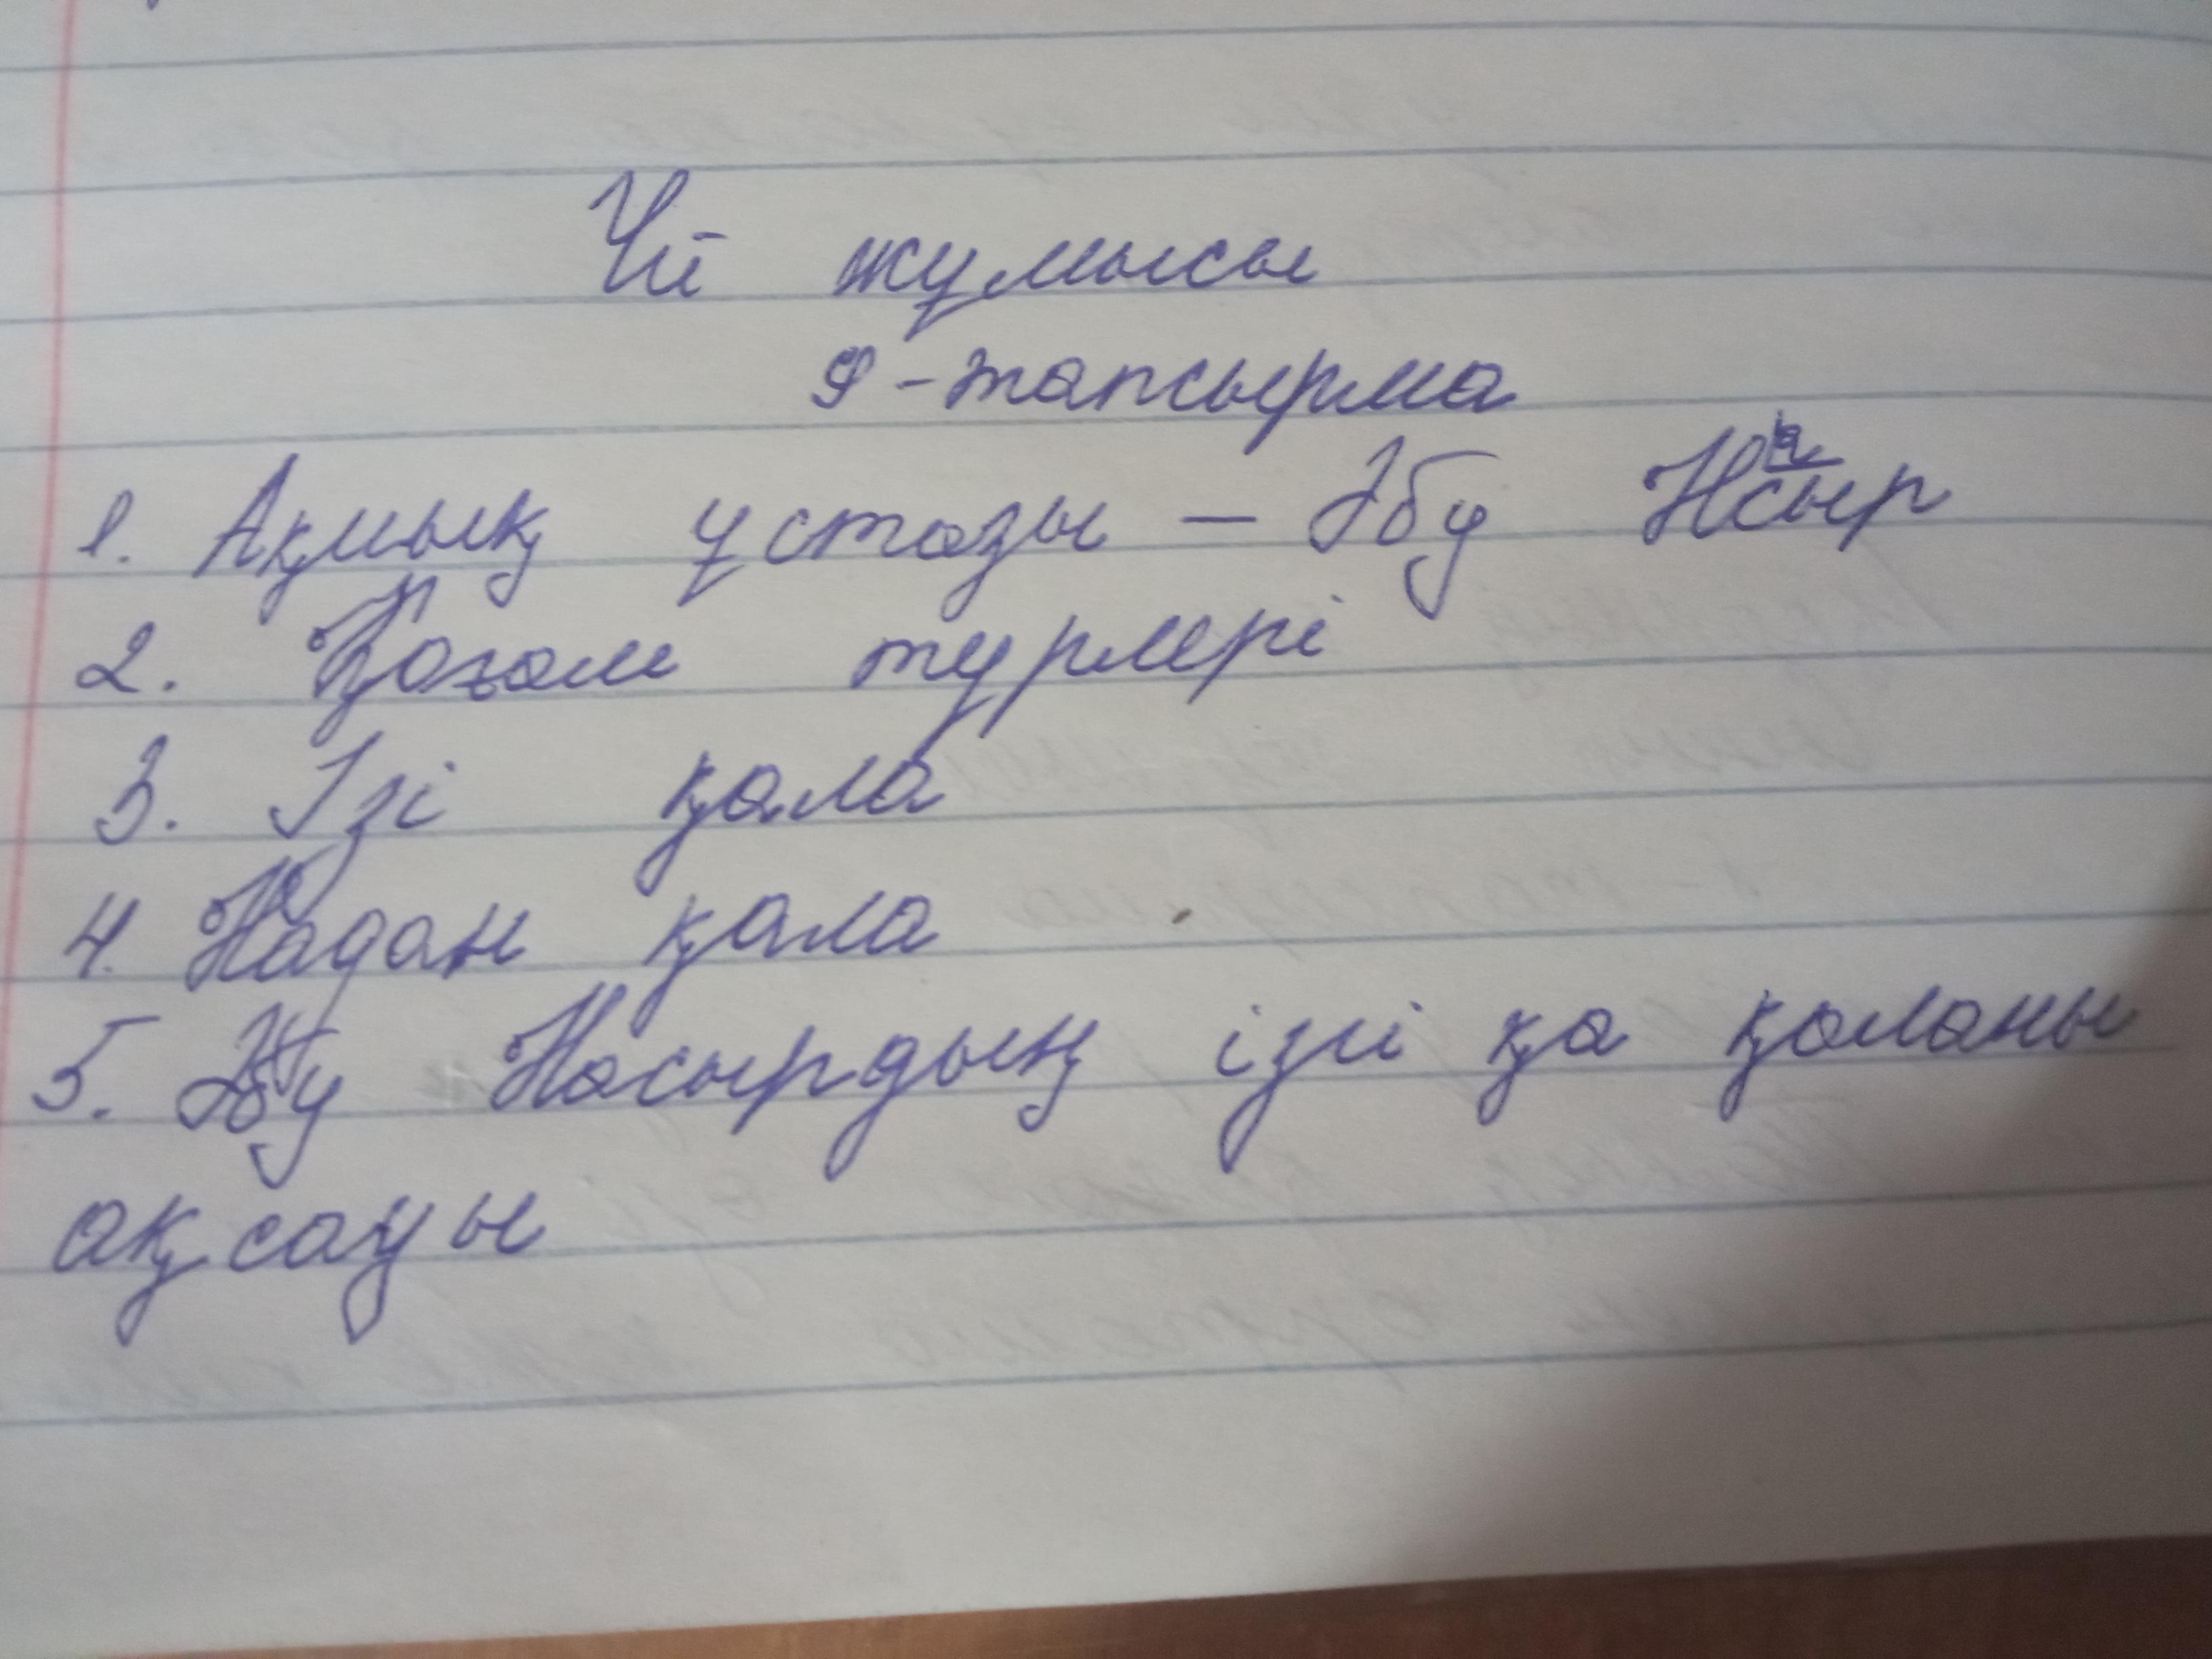 Үй жұмысы
9-тапсырма
1. Ақмық ұстазы – Әбу Насыр
2. Қоғам түрлері
3. Ізгі қала
4. Надан қала
5. Әбу Насырдың ізгі қа қаланы
ақсауы